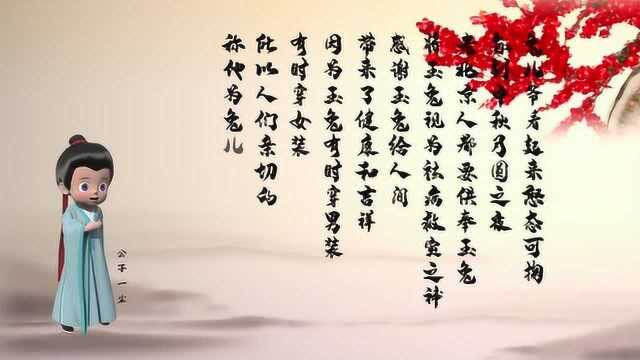 兔儿爷看起来憨态可掬
每到中秋乃圆之夜
老北京人都要供奉玉兔
将玉兔视为祛病救灾之神
感谢玉兔给人间
带来了健康和吉祥
因为玉兔有时穿男装
有时穿女装
所以人们亲切的
称他为兔儿
公子一尘